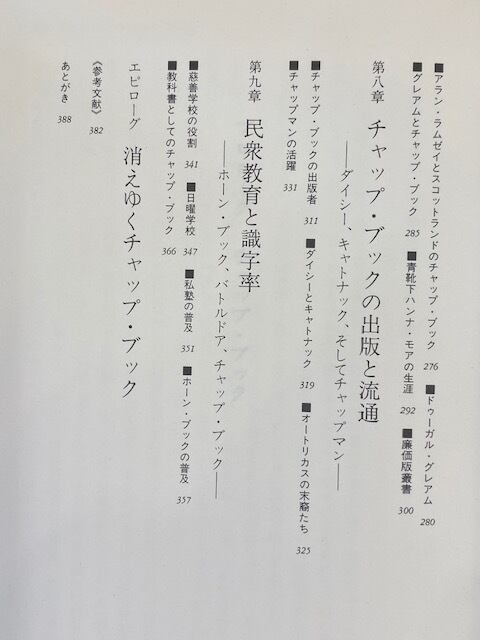 ■アラン・ラムゼイとスコットランドのチャップ・ブック 276 ■ドゥーガル・グレアム 280
■グレアムとチャップ・ブック 285 ■青靴下ハンナ・モアの生涯 292 ■廉価版叢書 300
第八章 チャップ・ブックの出版と流通
――ダイシー、キャトナック、そしてチャップマン――
■チャップ・ブックの出版者 311 ■ダイシーとキャトナック 319 ■オートリカスの末裔たち 325
■チャップマンの活躍 331
第九章 民衆教育と識字率
――ホーン・ブック、バトルドア、チャップ・ブック――
■慈善学校の役割 341 ■日曜学校 347 ■私塾の普及 351 ■ホーン・ブックの普及 357
■教科書としてのチャップ・ブック 366
エピローグ 消えゆくチャップ・ブック
《参考文献》 382
あとがき 388